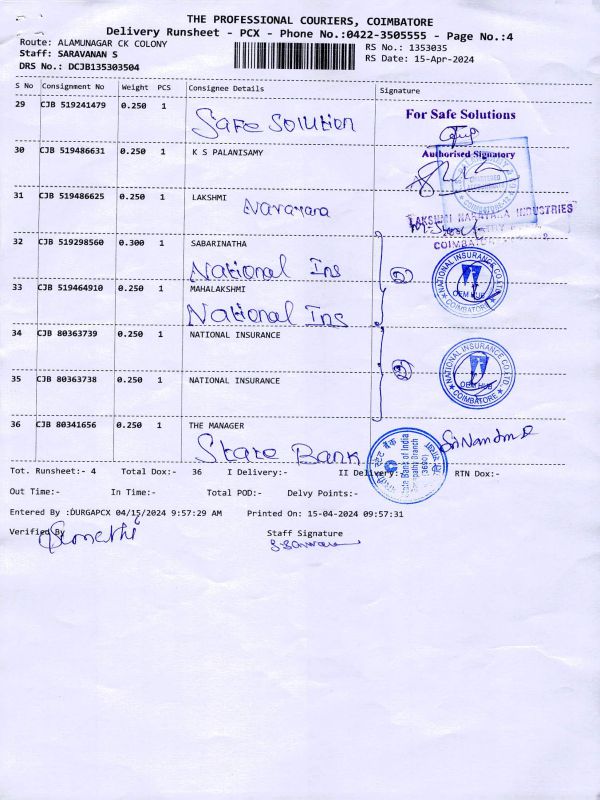 THE PROFESSIONAL COURIERS, COIMBATORE
Delivery Runsheet - PCX - Phone No.:0422-3505555 - Page No.:4
Route: ALAMUNAGAR CK COLONY
RS No.: 1353035
Staff: SARAVANAN S
RS Date: 15-Apr-2024
DRS No.: DCJB135303504
S No Consignment No Weight PCS Consignee Details Signature
29 CJB 519241479 0.250 1 Safe Solution For Safe Solutions
Authorised Signatory
30 CJB 519486631 0.250 1 K S PALANISAMY
31 CJB 519486625 0.250 1 LAKSHMI Narayana
LAKSHMI NARAYANA INDUSTRIES
COIMBATORE
32 CJB 519298560 0.300 1 SABARINATHA
National Ins
NATIONAL INSURANCE CO.LTD. COIMBATORE
33 CJB 519464910 0.250 1 MAHALAKSHMI
National Ins
34 CJB 80363739 0.250 1 NATIONAL INSURANCE
NATIONAL INSURANCE CO.LTD. COIMBATORE
35 CJB 80363738 0.250 1 NATIONAL INSURANCE
36 CJB 80341656 0.250 1 THE MANAGER
State Bank
State Bank of India
Branch
Tot. Runsheet:- 4 Total Dox:- 36 I Delivery:- II Delivery:- RTN Dox:-
Out Time:- In Time:- Total POD:- Delvy Points:-
Entered By :DURGAPCX 04/15/2024 9:57:29 AM Printed On: 15-04-2024 09:57:31
Verified By Staff Signature